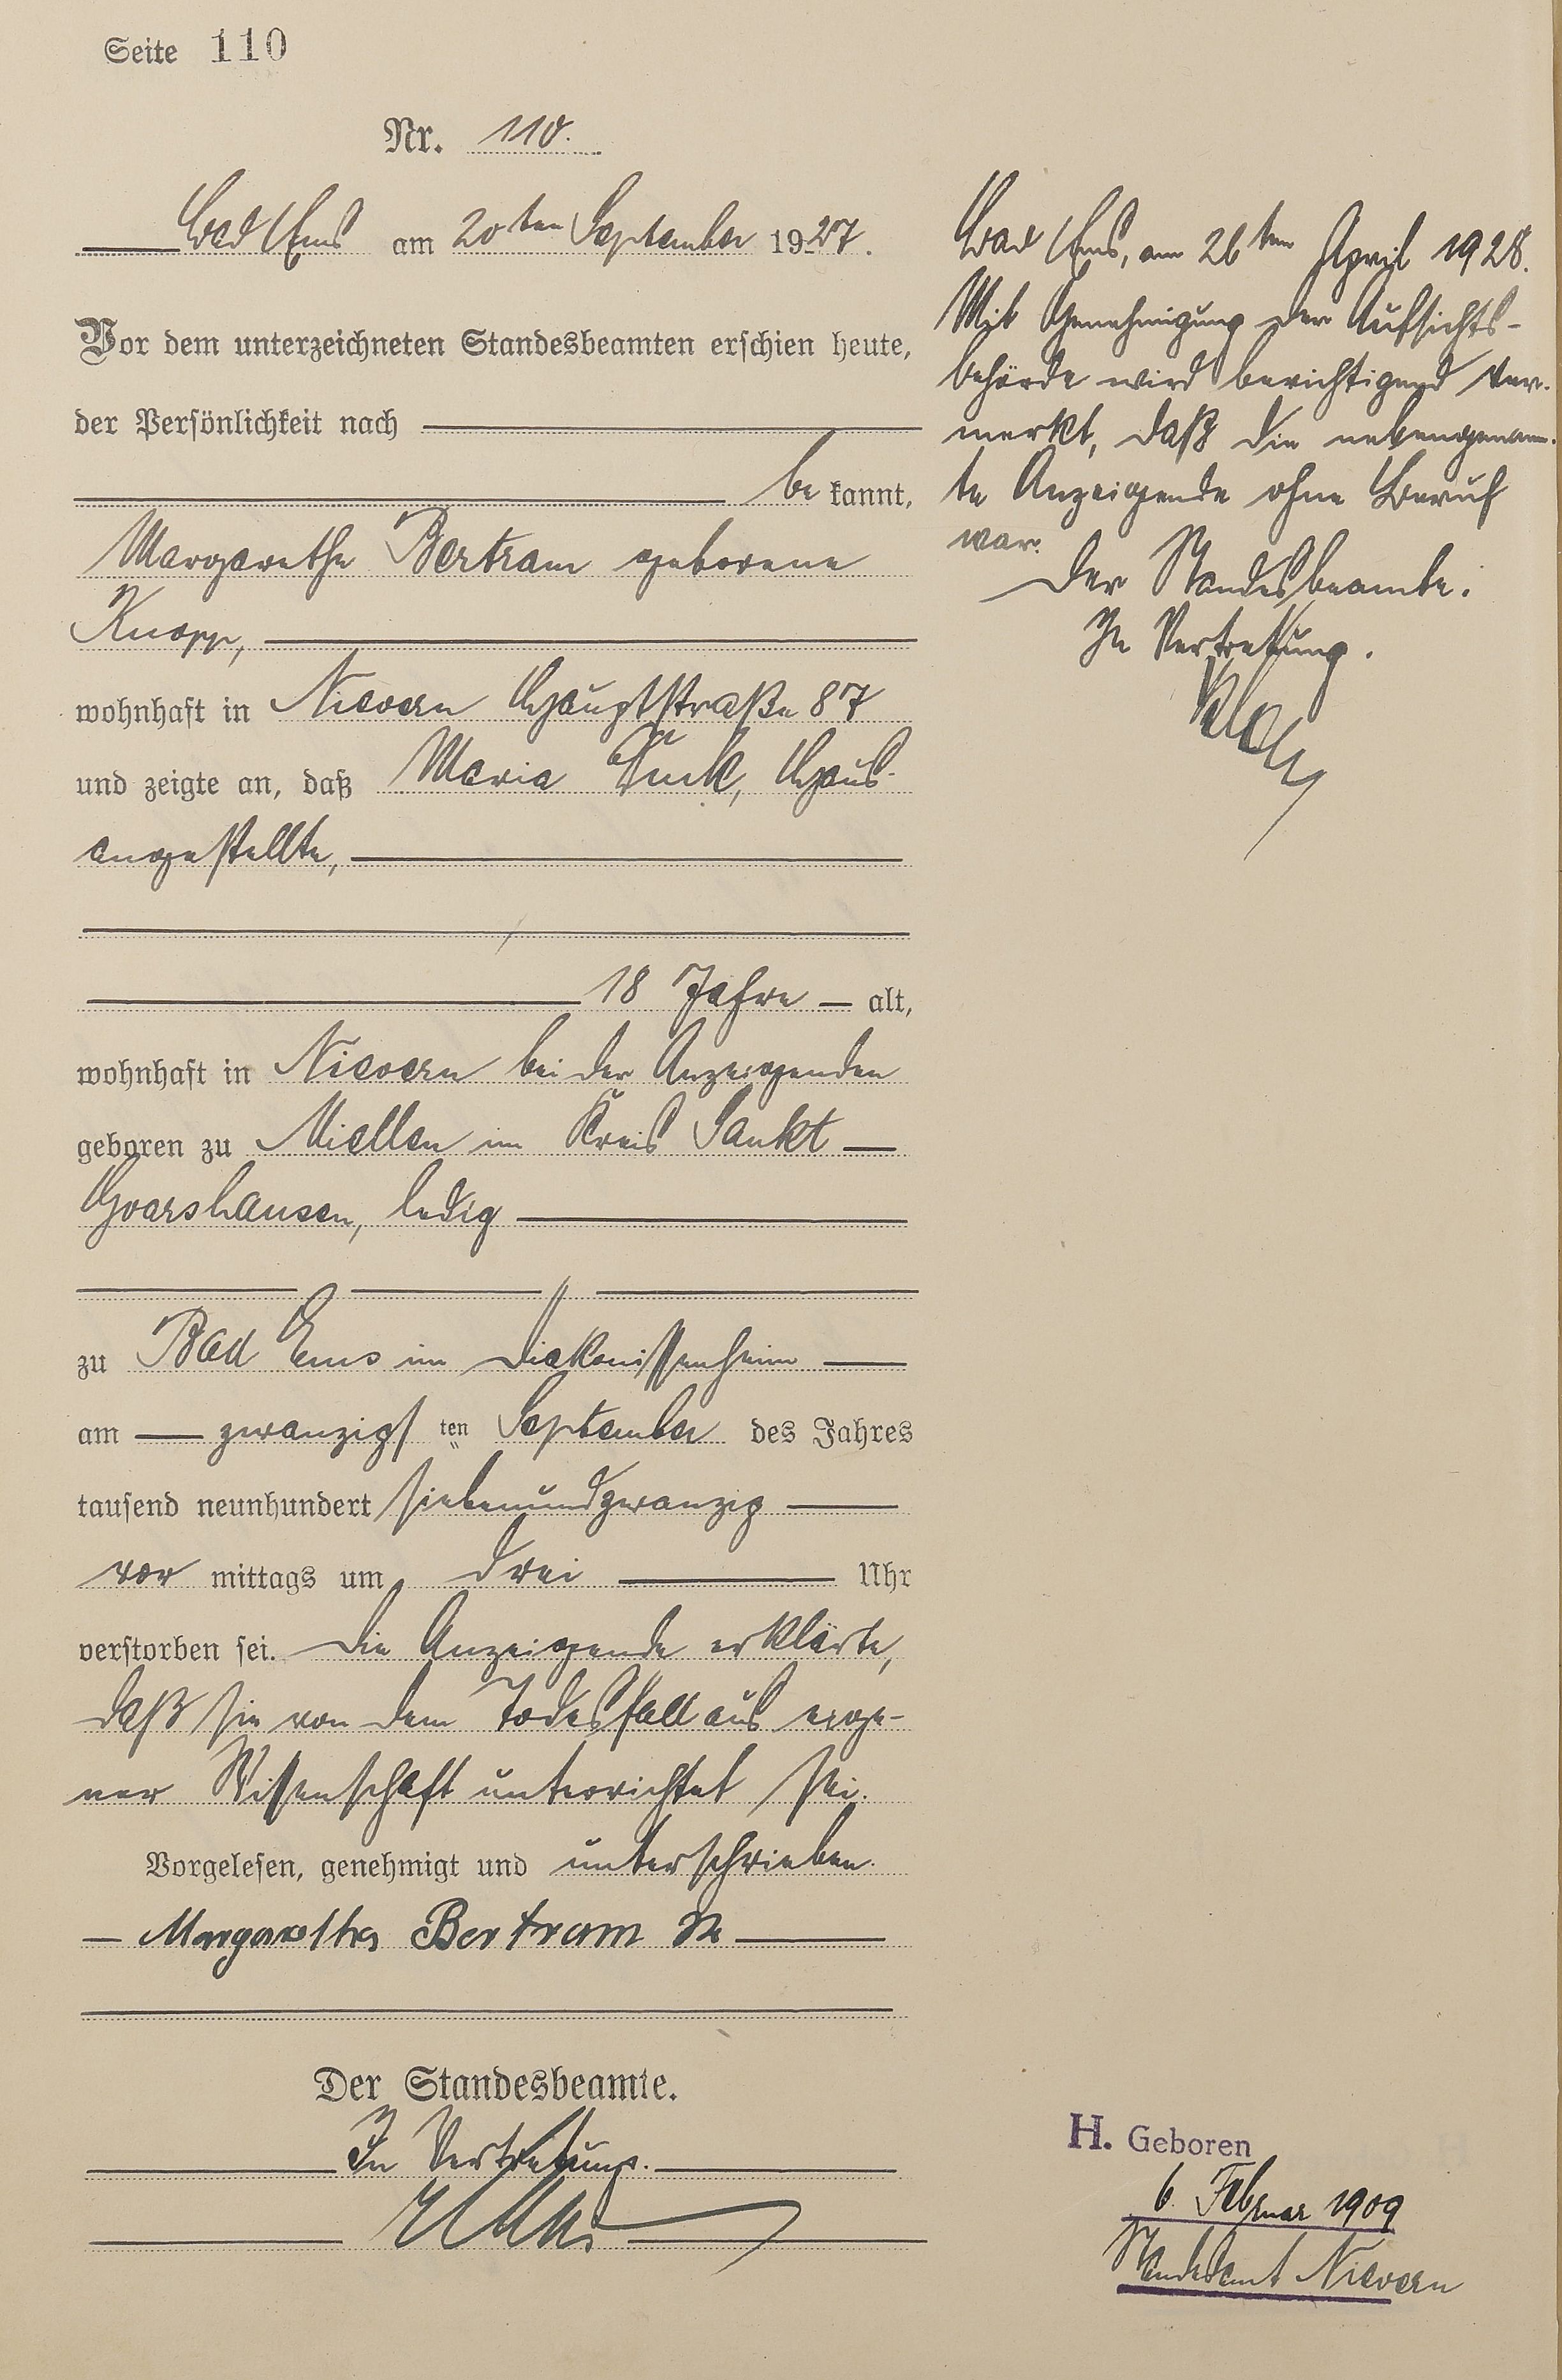 Seite 110
Nr. 110.
Bad Ems am 20ten September 1927.
Vor dem unterzeichneten Standesbeamten erschien heute,
der Persönlichkeit nach
be kannt,
Margarethe Bertram geborene
Knopp,
wohnhaft in Nievern Hauptstraße 87
und zeigte an, daß Maria Haus-
angestellte,
18 Jahre alt,
wohnhaft in Nievern bei der Anzeigenden
geboren zu Miellen im Kreis Sankt
Goarshausen, ledig
zu Bad Ems im Diakonissenheim
am zwanzigsten September des Jahres
tausend neunhundert siebenundzwanzig
vor mittags um drei Uhr
verstorben sei. Die Anzeigende erklärte,
daß sie von dem Todesfall aus eige-
ner Wissenschaft unterrichtet sei.
Vorgelesen, genehmigt und unterschrieben.
Margarethe Bertram
Der Standesbeamte.
In Vertretung.
Bad Ems, am 26ten April 1928.
Mit Genehmigung der Aufsichts-
behörde wird berichtigend ver-
merkt, daß die nebengenann-
te Anzeigende ohne Beruf
war.
Der Standesbeamte.
In Vertretung.
H. Geboren
6. Februar 1909
Standesamt Nievern